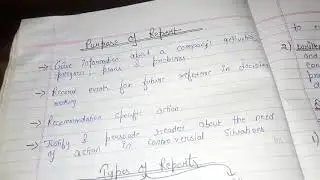 Purpose of Report
→ Give Information about a company's activities,
progress, plans & problems.
→ Record events for future reference in decision
making
→ Recommendation specific action.
→ Justify & persuade reader about the need
of action in controversial situations
Types of Reports
to
2)
and